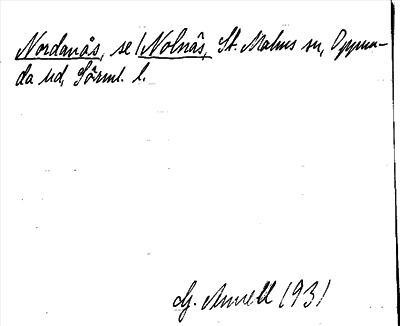 Nordanås, se Nolnås, St. Malms sn, Oppun-
da hd, Sörml. l.
G. 1931